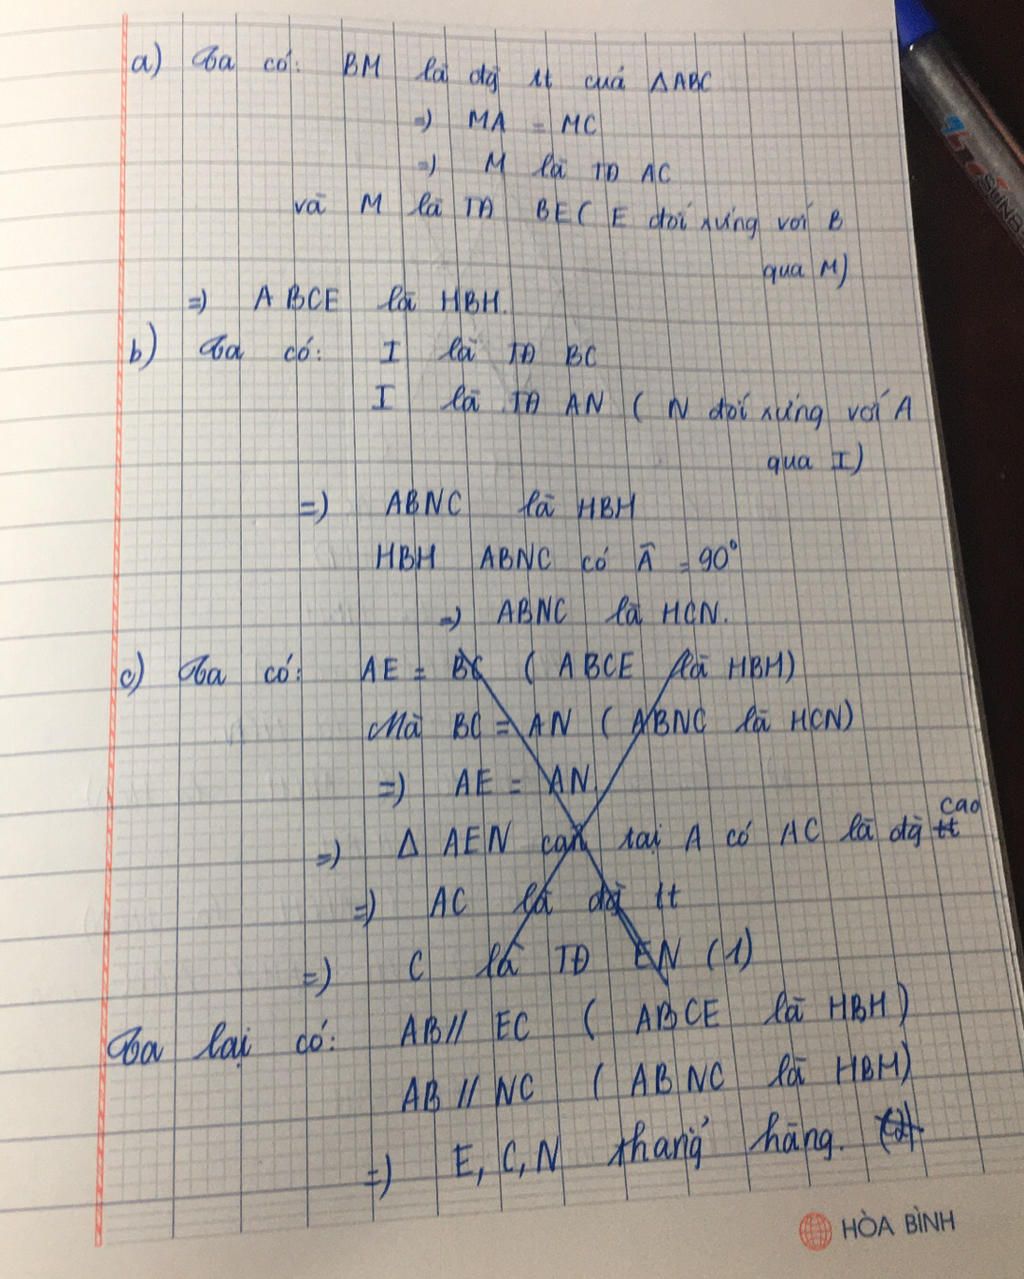 a) Ta có: BM là đg tt cuả ΔABC
=) MA = MC
=) M là TĐ AC
và M là TĐ BE ( E đối xứng với B
qua M)
=) ABCE là HBH.
b) Ta có: I là TĐ BC
I là TĐ AN ( N đối xứng với A
qua I)
=) ABNC là HBH
HBH ABNC có Â = 90°
=) ABNC là HCN.
c) Ta có: AE = BC ( ABCE là HBH)
Mà BC = AN ( ABNC là HCN)
=) AE = AN
=) Δ AEN cạn tại A có AC là đg tt cao
=) AC là đg tt
=) C là TĐ EN (1)
Ta lại có: AB // EC ( ABCE là HBH)
AB // NC ( ABNC là HBH)
=) E, C, N thang̉ hàng. (2)
HÒA BÌNH